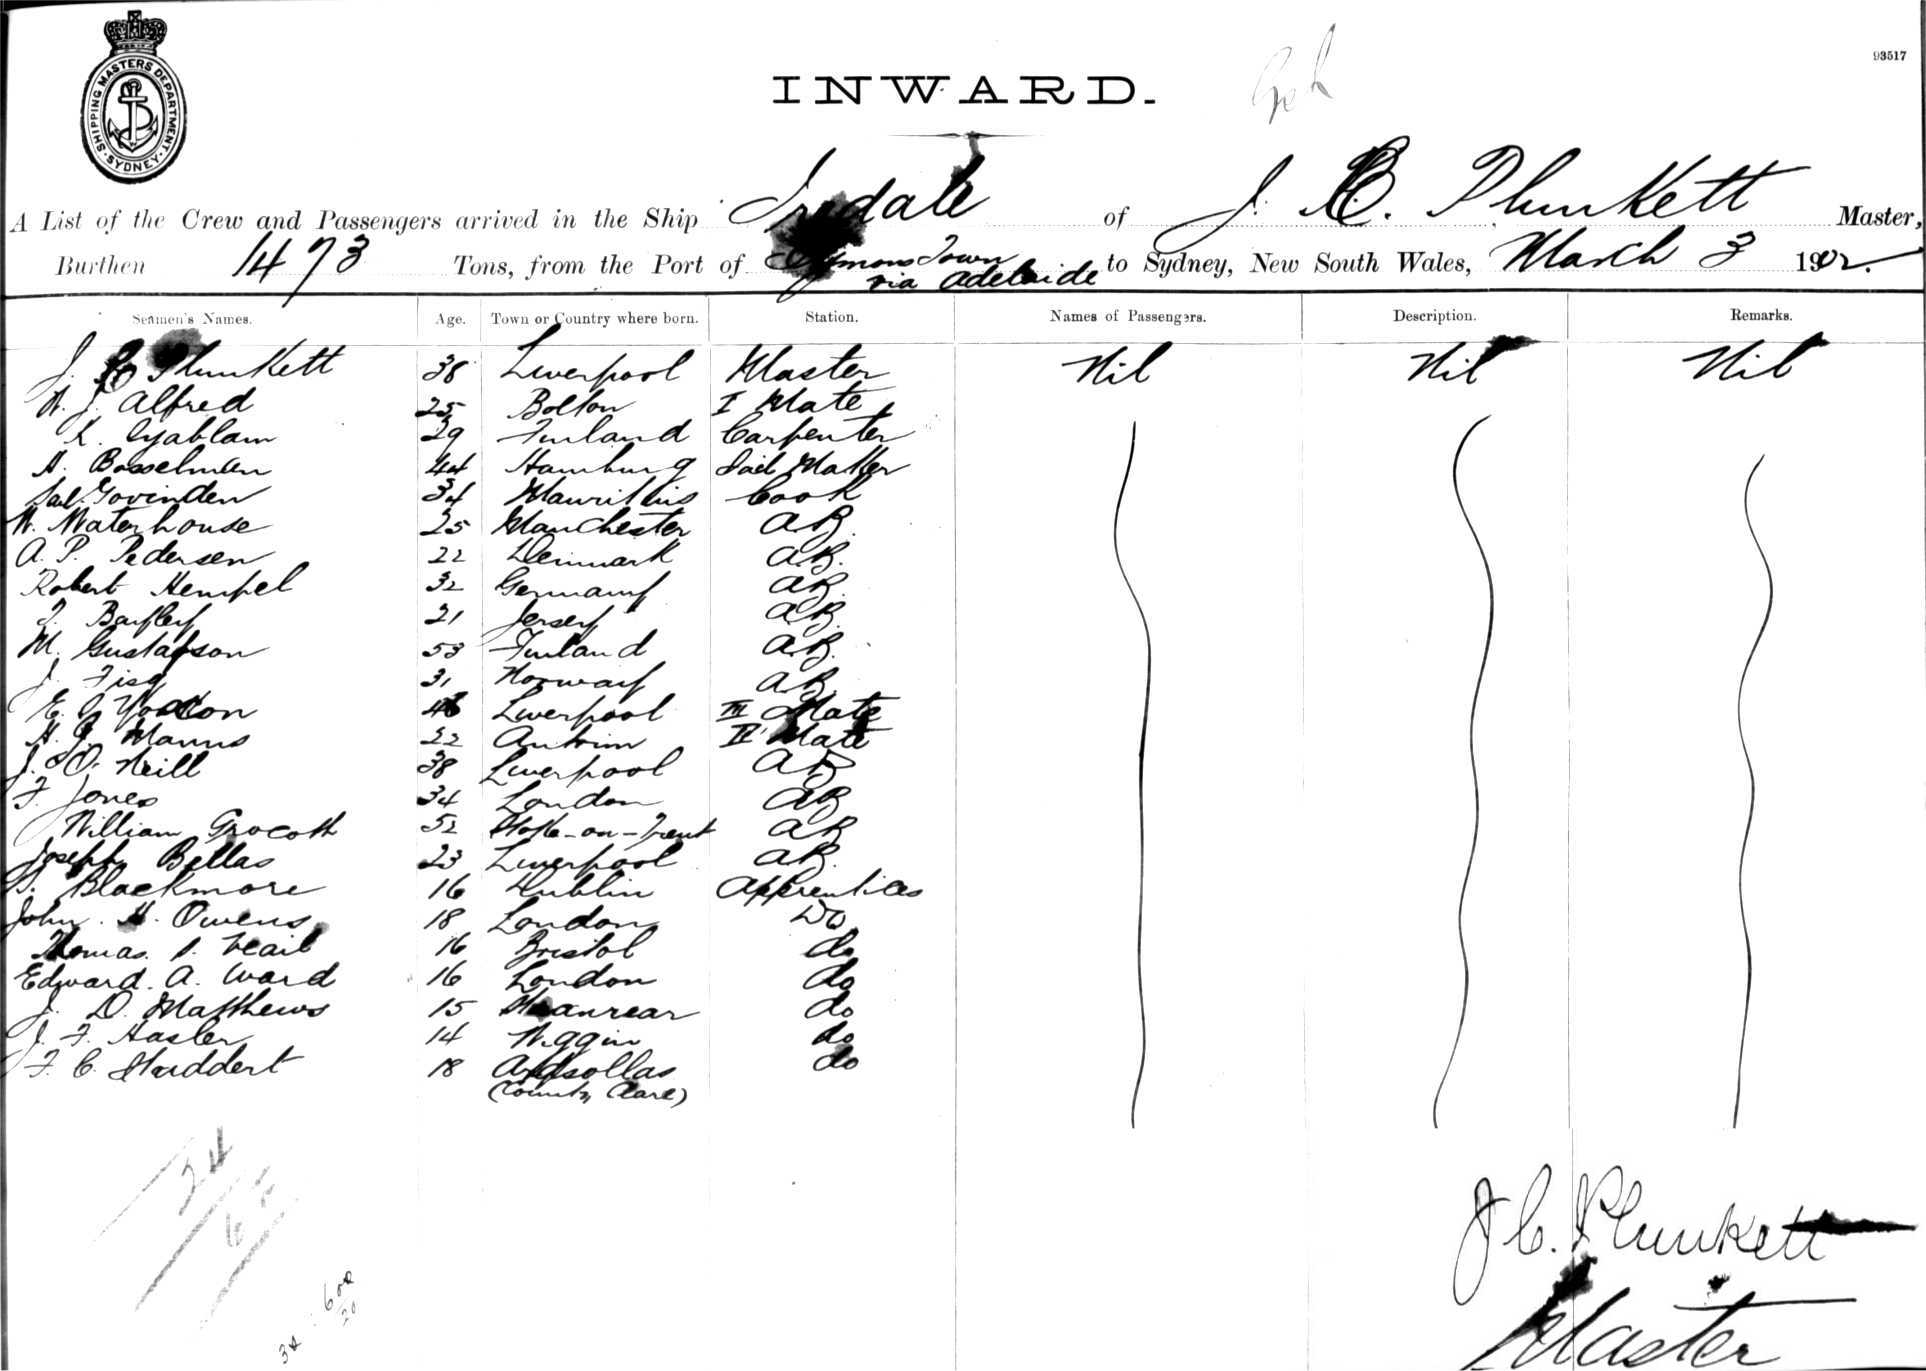 SHIPPING MASTERS DEPARTMENT. SYDNEY
93517
INWARD.
A List of the Crew and Passengers arrived in the Ship Iredale of J. C. Plunkett Master,
Burthen 1473 Tons, from the Port of Symons Town via Adelaide to Sydney, New South Wales, March 3 1902.
Seamen's Names. Age. Town or Country where born. Station. Names of Passengers. Description. Remarks.
J. C. Plunkett 38 Liverpool Master Nil Nil Nil
W. J. Alfred 25 Bolton I Mate
K. 29 Finland Carpenter
H. Bosselman 44 Hamburg Sail Maker
Govinden 34 Mauritius Cook
W. Waterhouse 25 Manchester AB.
A. P. Pedersen 22 Denmark AB.
Robert Hempel 32 Germany AB.
Bayley 21 Jersey AB.
M. Gustafson 53 Finland AB.
J. 31 Norway AB.
E. Liverpool III Mate
H. J. Manns 22 Antrim IV Mate
J. O. Neill 38 Liverpool AB
F. Jones 34 London AB
William Grocott 52 Stoke-on-Trent AB
Joseph Bellas 23 Liverpool AB.
Blackmore 16 Dublin Apprentices
John. H. Owens 18 London Do
Thomas. Veail 16 Bristol do
Edward. A. Ward 16 London do
J. D. Matthews 15 do
J. F. Hasler 14 do
F. C. Studdert 18 Ardsollas do
(County Clare)
J C. Plunkett
Master